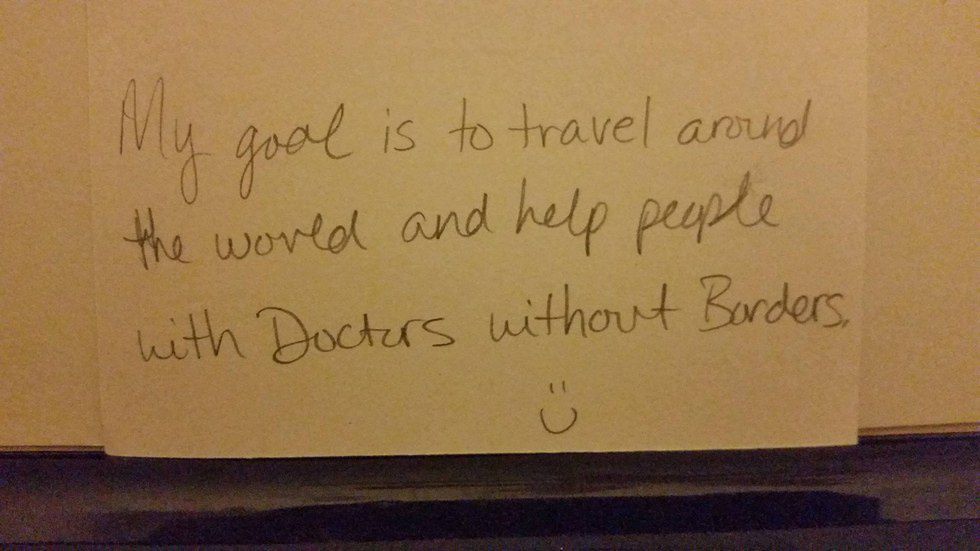 My goal is to travel around
the world and help people
with Doctors without Borders.